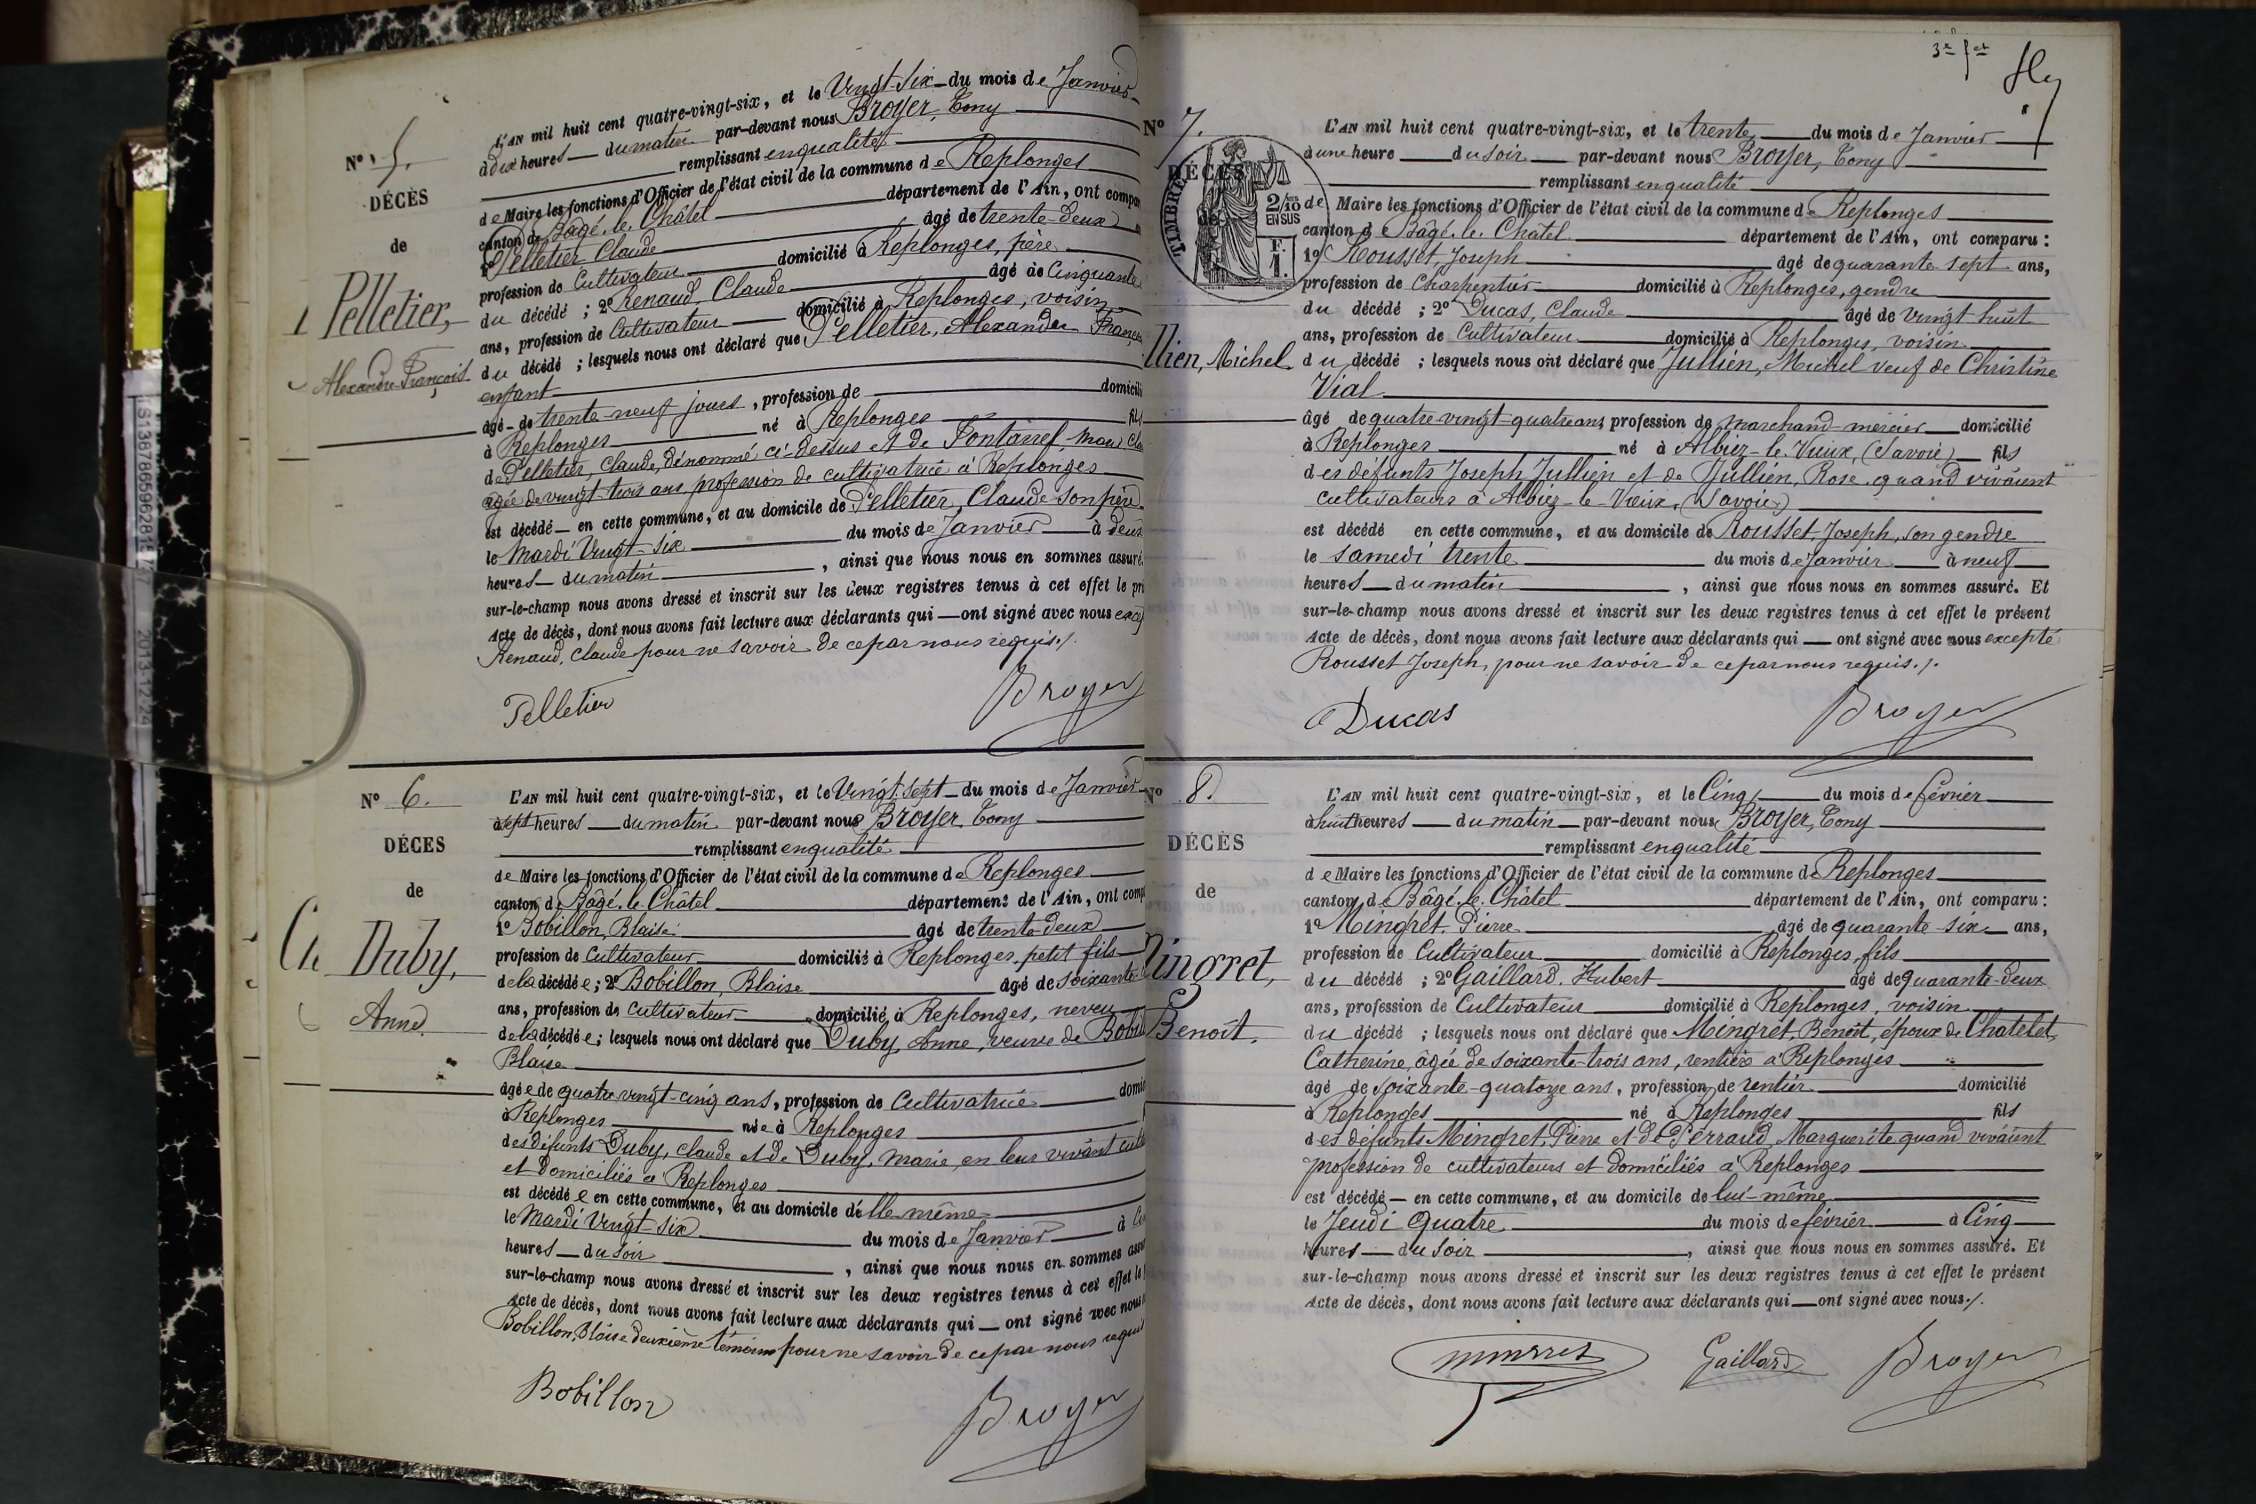 N° 5.
DÉCÈS
de
Pelletier,
Alexandre François
L'AN mil huit cent quatre-vingt-six, et le Vingt-six du mois de Janvier
à dix heures du matin par-devant nous Broyer, Tony
remplissant en qualité
de Maire les fonctions d'Officier de l'état civil de la commune de Replonges
canton de Bâgé-le-Châtel département de l'Ain, ont compar
1° Pelletier Claude âgé de trente-deux
profession de Cultivateur domicilié à Replonges, père
du décédé ; 2° Renaud, Claude âgé de Cinquante
ans, profession de Cultivateur domicilié à Replonges, voisin
du décédé ; lesquels nous ont déclaré que Pelletier, Alexandre François
enfant
âgé de trente-neuf jours, profession de domicilié
à Replonges né à Replonges fils
de Pelletier, Claude, dénommé ci-dessus et de
âgée de vingt-trois ans, profession de cultivatrice à Replonges
est décédé en cette commune, et au domicile de Pelletier, Claude son père
le Mardi Vingt-six du mois de Janvier à deux
heures du matin, ainsi que nous nous en sommes assuré.
sur-le-champ nous avons dressé et inscrit sur les deux registres tenus à cet effet le pré
Acte de décès, dont nous avons fait lecture aux déclarants qui ont signé avec nous excep
Renaud, Claude pour ne savoir de ce par nous requis./.
Pelletier Broyer
N° 6.
DÉCÈS
de
Duby,
Anne
L'AN mil huit cent quatre-vingt-six, et le Vingt-sept du mois de Janvier
à sept heures du matin par-devant nous Broyer, Tony
remplissant en qualité
de Maire les fonctions d'Officier de l'état civil de la commune de Replonges
canton de Bâgé-le-Châtel département de l'Ain, ont comp
1° Bobillon, Blaise âgé de trente-deux
profession de Cultivateur domicilié à Replonges, petit fils
de la décédée ; 2° Bobillon, Blaise âgé de soixante
ans, profession de Cultivateur domicilié à Replonges, neveu
de la décédée ; lesquels nous ont déclaré que Duby, Anne, veuve de Bobil
Blaise
âgée de quatre vingt-cinq ans, profession de Cultivatrice domic
à Replonges née à Replonges
des défunts Duby, Claude et de Duby, Marie, en leur vivant cult
et domiciliés à Replonges
est décédée en cette commune, et au domicile d'elle même
le Mardi Vingt-six du mois de Janvier à
heures du soir, ainsi que nous nous en sommes assu
sur-le-champ nous avons dressé et inscrit sur les deux registres tenus à cet effet le
Acte de décès, dont nous avons fait lecture aux déclarants qui ont signé avec nous
Bobillon, Blaise deuxième témoin pour ne savoir de ce par nous requis
Bobillon Broyer
3e fet
N° 7.
DÉCÈS
TIMBRE
2/10 EN SUS
F. 1.
llien, Michel
L'AN mil huit cent quatre-vingt-six, et le trente du mois de Janvier
à une heure du soir par-devant nous Broyer, Tony
remplissant en qualité
de Maire les fonctions d'Officier de l'état civil de la commune de Replonges
canton de Bâgé-le-Châtel département de l'Ain, ont comparu :
1° Rousset, Joseph âgé de quarante-sept ans,
profession de Charpentier domicilié à Replonges, gendre
du décédé ; 2° Ducas, Claude âgé de vingt-huit
ans, profession de Cultivateur domicilié à Replonges, voisin
du décédé ; lesquels nous ont déclaré que Jullien, Michel veuf de Christine
Vial
âgé de quatre vingt-quatre ans, profession de marchand-mercier domicilié
à Replonges né à Albiez-le-Vieux, (Savoie) fils
des défunts Joseph Jullien et de Jullien, Rose, quand vivaient
cultivateurs à Albiez-le-Vieux, (Savoie)
est décédé en cette commune, et au domicile de Rousset, Joseph, son gendre
le samedi trente du mois de Janvier à neuf
heures du matin, ainsi que nous nous en sommes assuré. Et
sur-le-champ nous avons dressé et inscrit sur les deux registres tenus à cet effet le présent
Acte de décès, dont nous avons fait lecture aux déclarants qui ont signé avec nous excepté
Rousset Joseph, pour ne savoir de ce par nous requis./.
Ducas Broyer
N° 8.
DÉCÈS
de
Mingret,
Benoît.
L'AN mil huit cent quatre-vingt-six, et le Cinq du mois de février
à huit heures du matin par-devant nous Broyer, Tony
remplissant en qualité
de Maire les fonctions d'Officier de l'état civil de la commune de Replonges
canton de Bâgé-le-Châtel département de l'Ain, ont comparu :
1° Mingret, Pierre âgé de quarante-six ans,
profession de Cultivateur domicilié à Replonges, fils
du décédé ; 2° Gaillard, Hubert âgé de quarante-deux
ans, profession de Cultivateur domicilié à Replonges, voisin
du décédé ; lesquels nous ont déclaré que Mingret, Benoît, époux de Chatelet,
Catherine, âgée de soixante-trois ans, rentière à Replonges
âgé de soixante-quatorze ans, profession de rentier domicilié
à Replonges né à Replonges fils
des défunts Mingret, Pierre et de Perraud, Marguerite quand vivaient
profession de cultivateurs et domiciliés à Replonges
est décédé en cette commune, et au domicile de lui-même
le Jeudi Quatre du mois de février à Cinq
heures du soir, ainsi que nous nous en sommes assuré. Et
sur-le-champ nous avons dressé et inscrit sur les deux registres tenus à cet effet le présent
Acte de décès, dont nous avons fait lecture aux déclarants qui ont signé avec nous./.
Gaillard Broyer